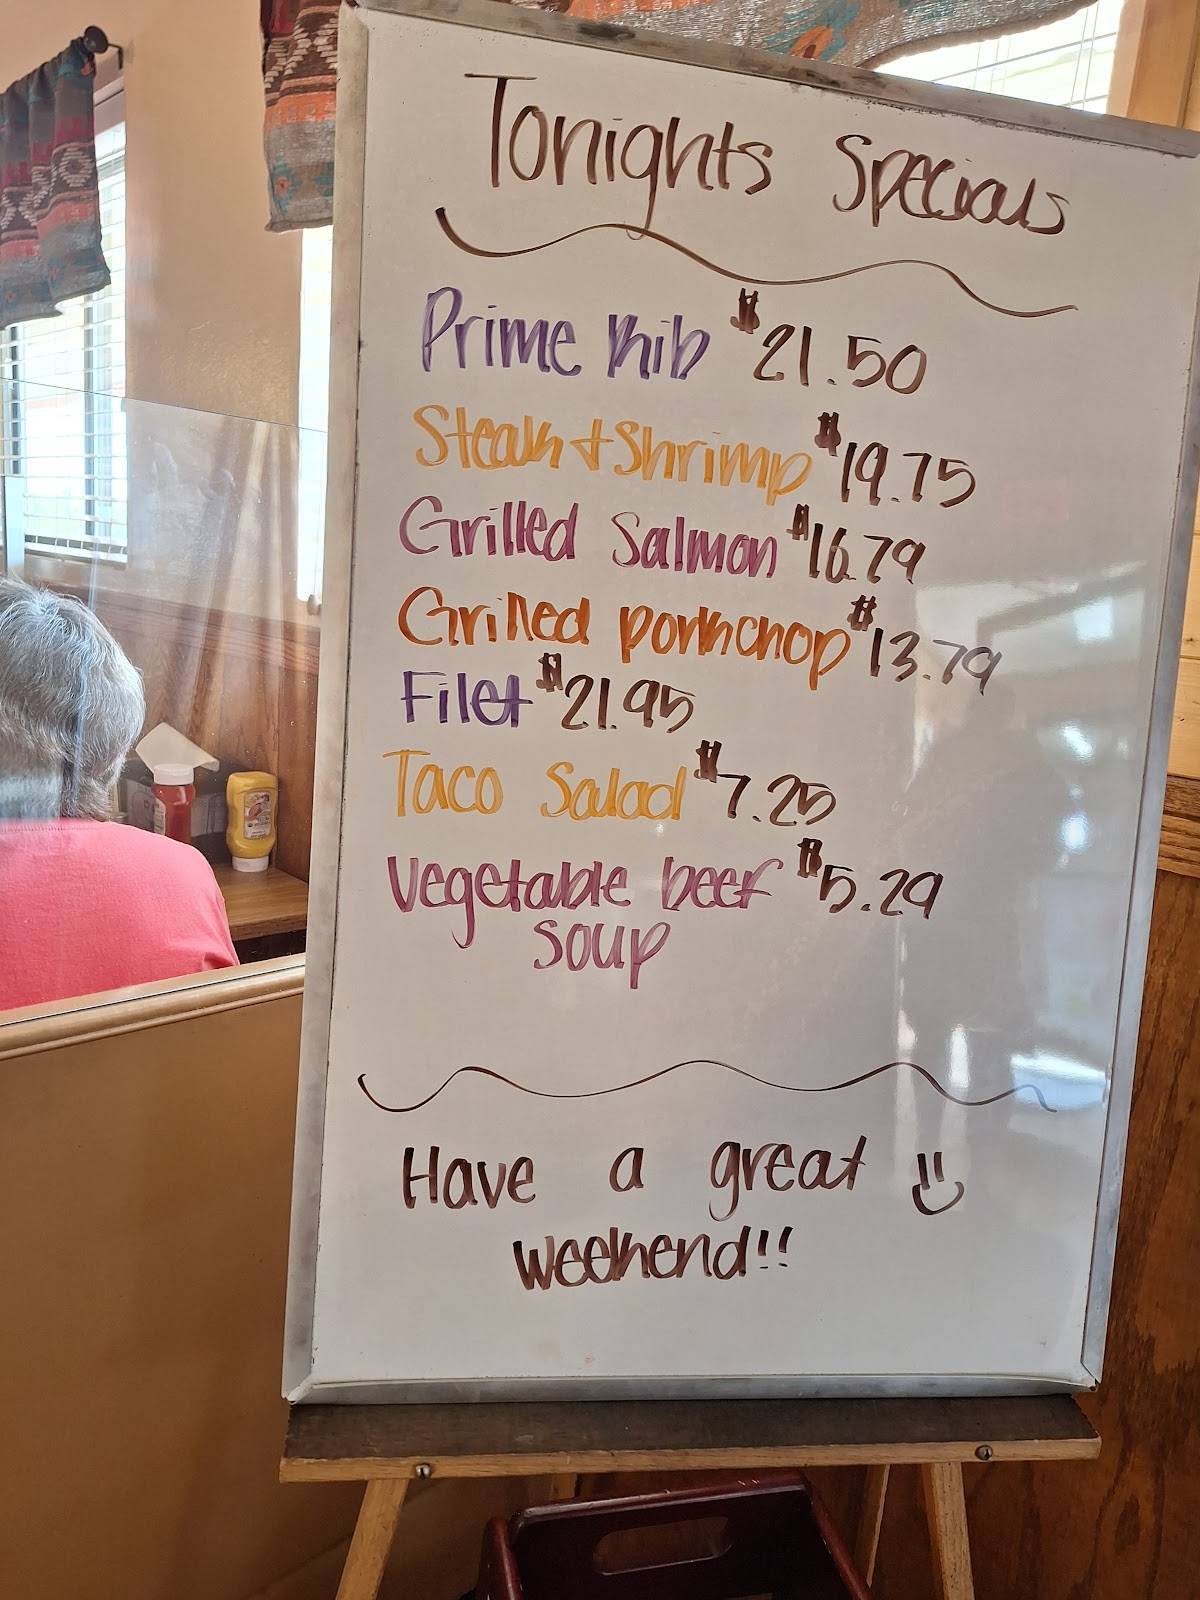 Tonights Specials
Prime Rib $21.50
Steak + Shrimp $19.75
Grilled Salmon $16.79
Grilled porkchop $13.79
Filet $21.95
Taco Salad $7.25
Vegetable beef $5.29
soup
Have a great
weekend!!